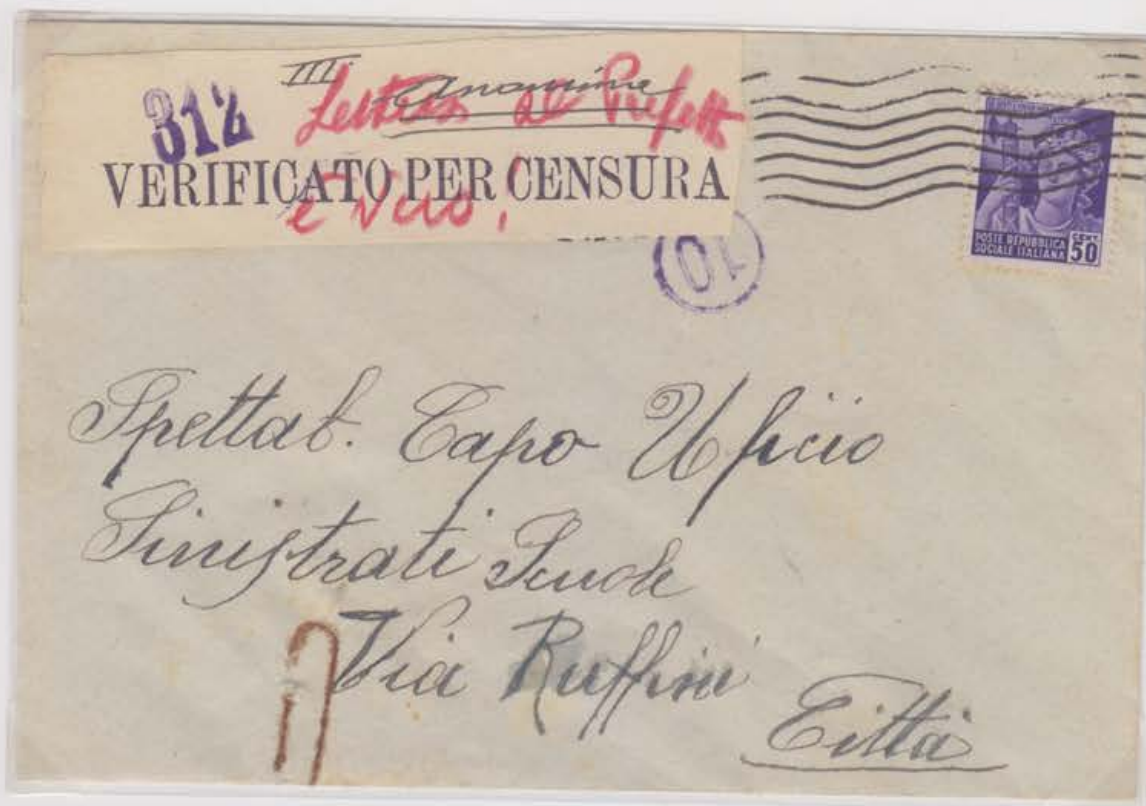 III
Anonima
312 Lettera al Prefett
VERIFICATO PER CENSURA
è vero!
10
POSTE REPUBBLICA
SOCIALE ITALIANA
CENT.
50
Spettab. Capo Uficio
Sinistrati Scuole
Via Ruffini
Città